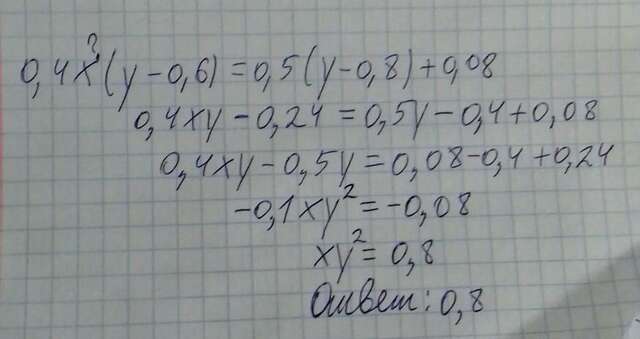 ?
0,4x(y-0,6)=0,5(y-0,8)+0,08
0,4xy-0,24=0,5y-0,4+0,08
0,4xy-0,5y=0,08-0,4+0,24
-0,1xy²=-0,08
xy²=0,8
Ответ: 0,8